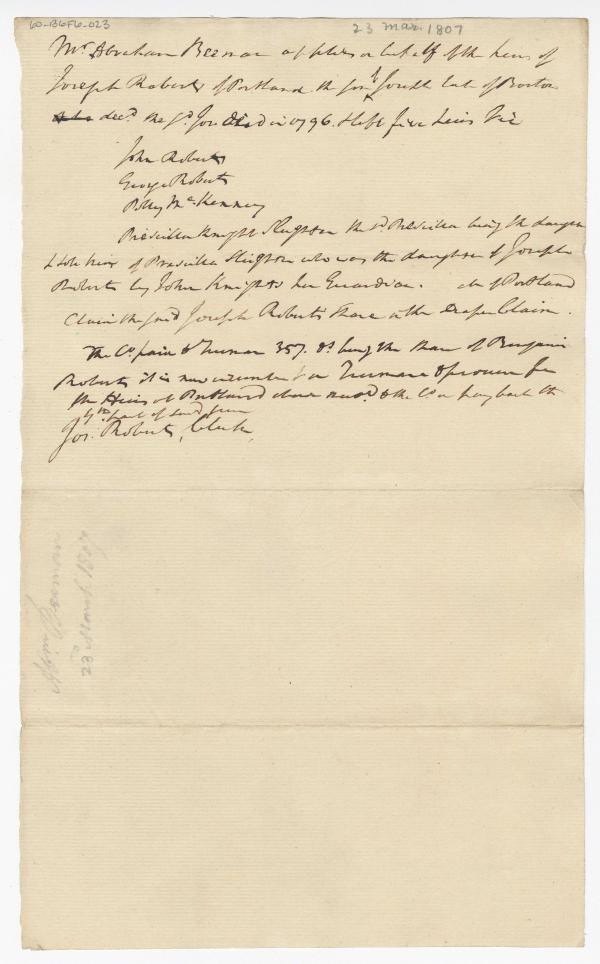 60-B6F6-023
23 Mar. 1807
Mr. Abraham Beeman applies on behalf of the heirs of
Joseph Roberts of Portland the son of Joseph late of Boston
decd. the sd. Jos died in 1796. & left five heirs Viz
John Roberts
George Roberts
Polly McKenney
Priscilla Knight Sleighton the sd Priscilla being the daughter
& sole heir of Priscilla Sleighton who was the daughter of Joseph
Roberts by John Knights her Guardian. all of Portland
Claim the said Joseph Roberts Share in the Draper Claim.
The Co. paid to Truman 357. Ds being the share of Benjamin
Roberts it is now incumbent on Trueman to procure from
the Heirs at Portland above nam'd to the Co or pay back the
part of said sum
Jos. Roberts, Clerk,
Abm Beeman
23rd March 1807